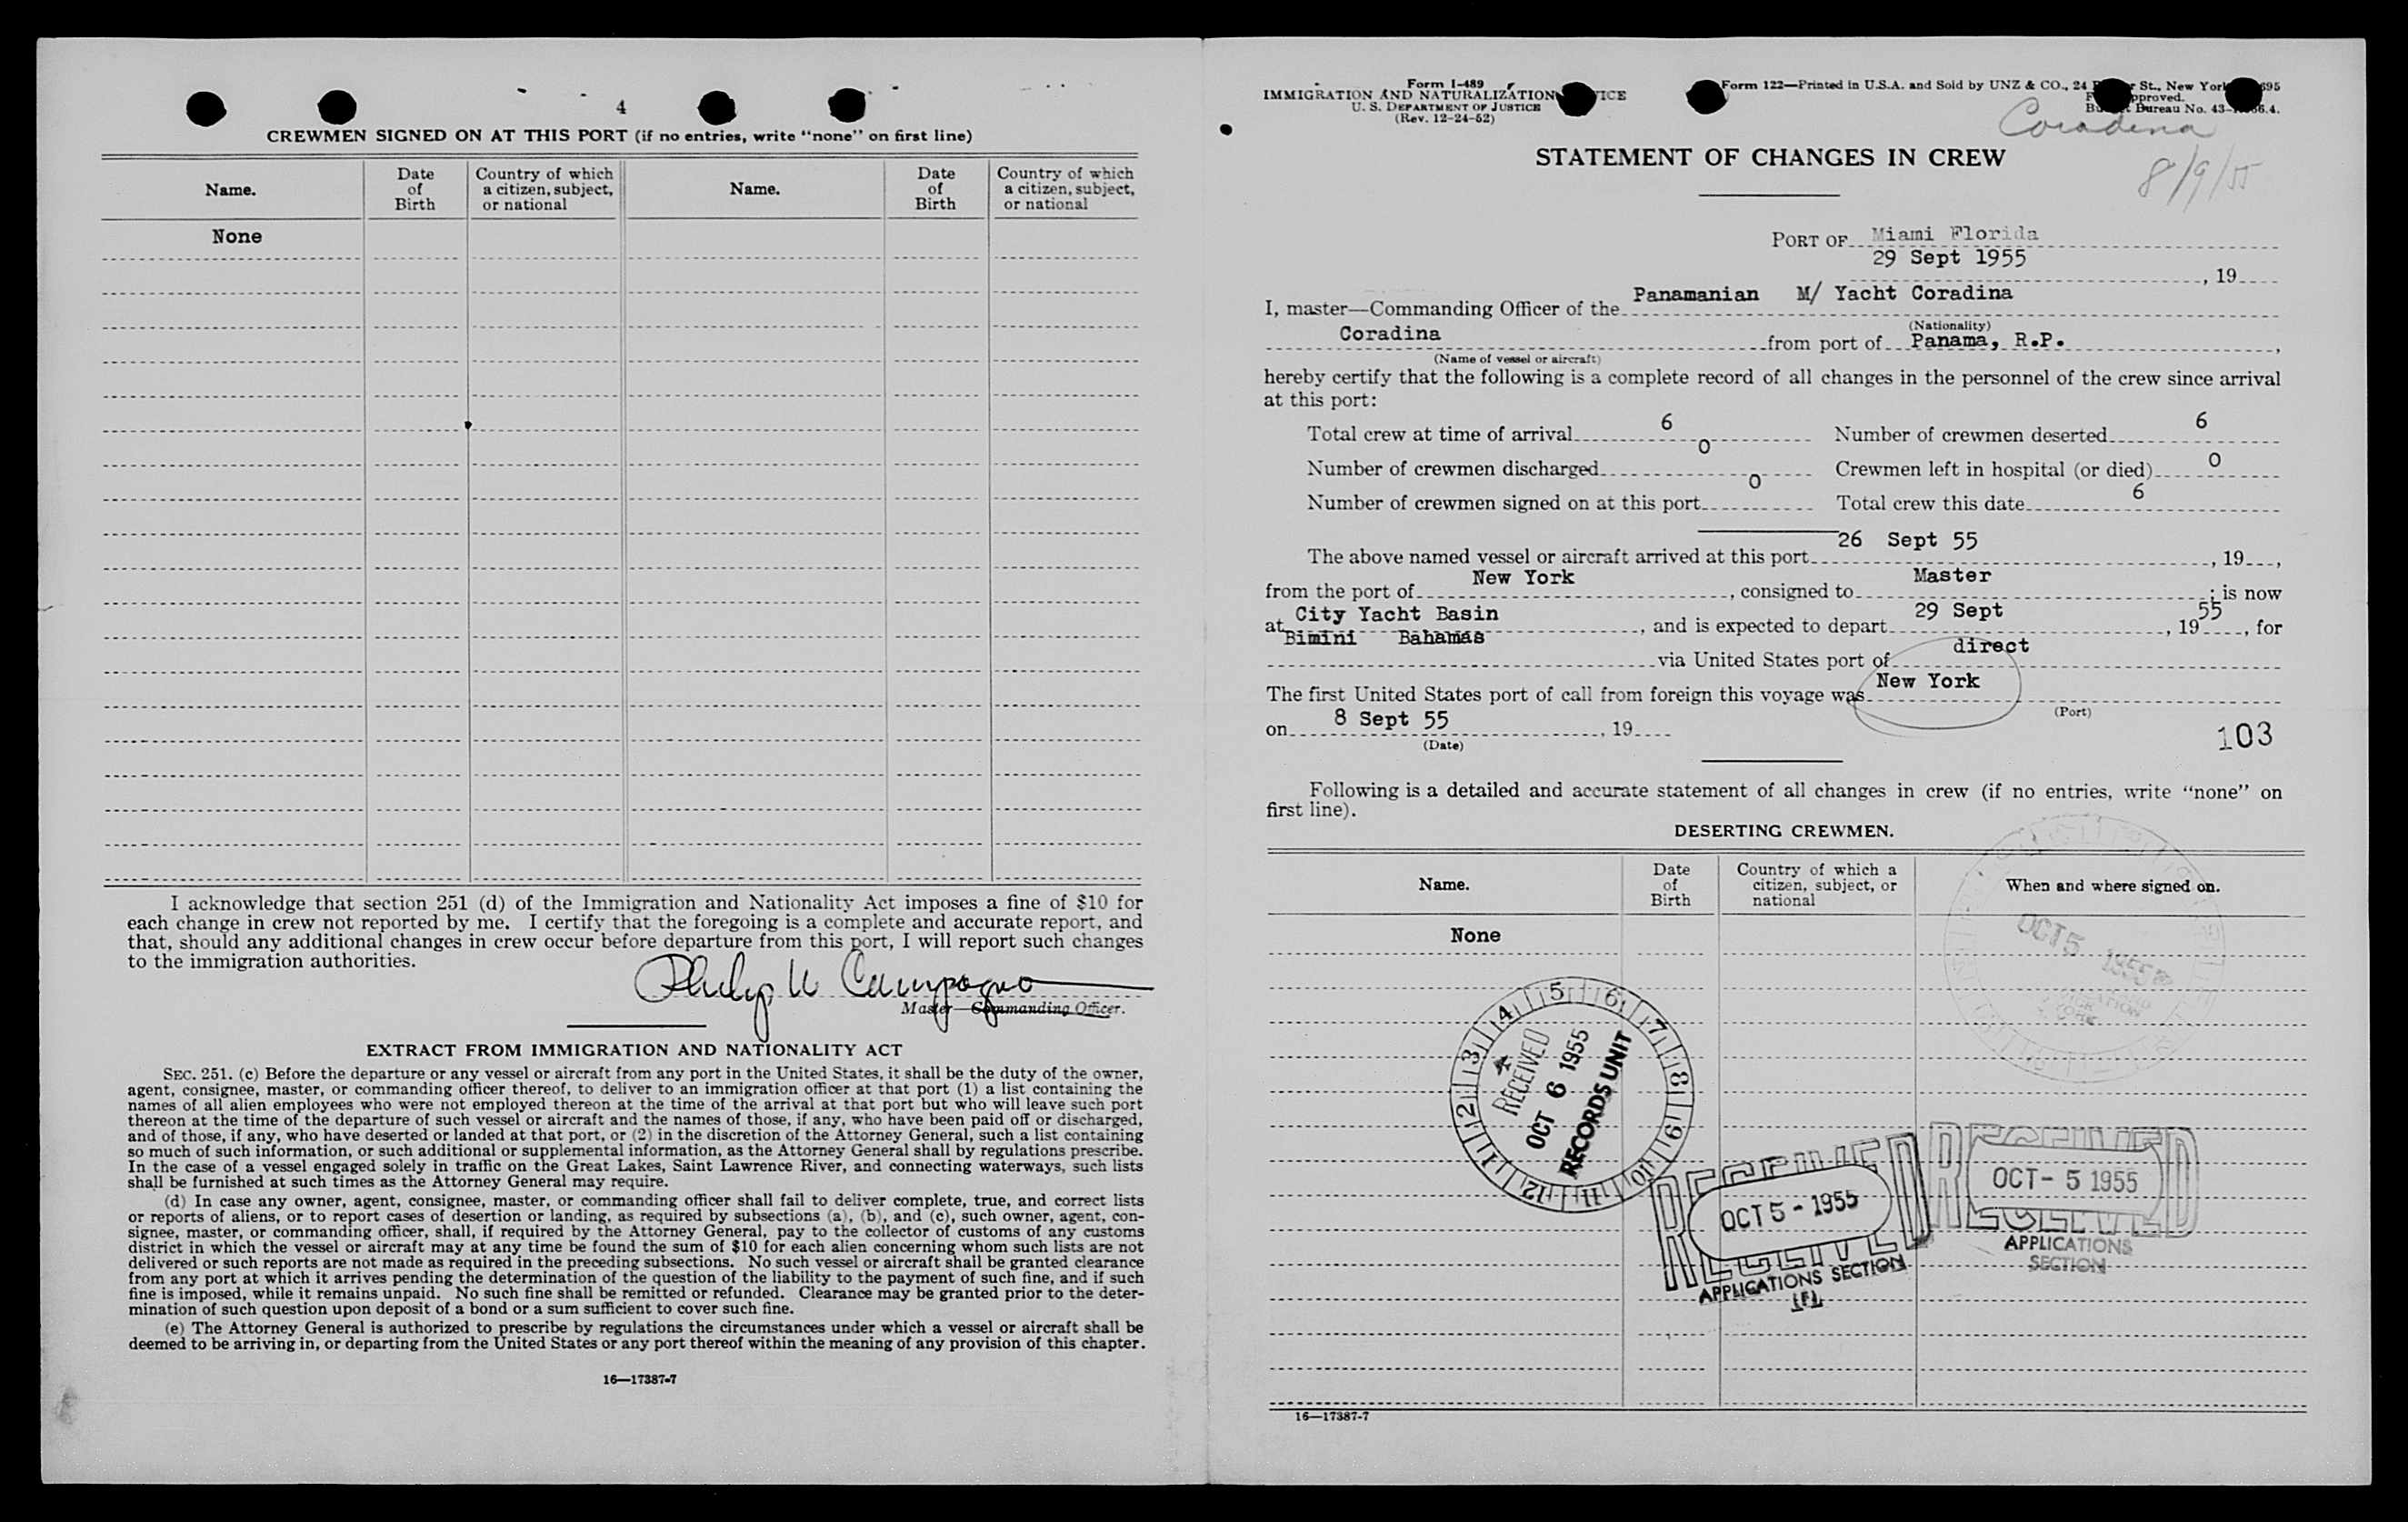 4
CREWMEN SIGNED ON AT THIS PORT (if no entries, write "none" on first line)
Name. Date of Birth Country of which a citizen, subject, or national Name. Date of Birth Country of which a citizen, subject, or national
None
I acknowledge that section 251 (d) of the Immigration and Nationality Act imposes a fine of $10 for
each change in crew not reported by me. I certify that the foregoing is a complete and accurate report, and
that, should any additional changes in crew occur before departure from this port, I will report such changes
to the immigration authorities.
Philip N Campagna
Master—Commanding Officer.
EXTRACT FROM IMMIGRATION AND NATIONALITY ACT
SEC. 251. (c) Before the departure or any vessel or aircraft from any port in the United States, it shall be the duty of the owner,
agent, consignee, master, or commanding officer thereof, to deliver to an immigration officer at that port (1) a list containing the
names of all alien employees who were not employed thereon at the time of the arrival at that port but who will leave such port
thereon at the time of the departure of such vessel or aircraft and the names of those, if any, who have been paid off or discharged,
and of those, if any, who have deserted or landed at that port, or (2) in the discretion of the Attorney General, such a list containing
so much of such information, or such additional or supplemental information, as the Attorney General shall by regulations prescribe.
In the case of a vessel engaged solely in traffic on the Great Lakes, Saint Lawrence River, and connecting waterways, such lists
shall be furnished at such times as the Attorney General may require.
(d) In case any owner, agent, consignee, master, or commanding officer shall fail to deliver complete, true, and correct lists
or reports of aliens, or to report cases of desertion or landing, as required by subsections (a), (b), and (c), such owner, agent, con-
signee, master, or commanding officer, shall, if required by the Attorney General, pay to the collector of customs of any customs
district in which the vessel or aircraft may at any time be found the sum of $10 for each alien concerning whom such lists are not
delivered or such reports are not made as required in the preceding subsections. No such vessel or aircraft shall be granted clearance
from any port at which it arrives pending the determination of the question of the liability to the payment of such fine, and if such
fine is imposed, while it remains unpaid. No such fine shall be remitted or refunded. Clearance may be granted prior to the deter-
mination of such question upon deposit of a bond or a sum sufficient to cover such fine.
(e) The Attorney General is authorized to prescribe by regulations the circumstances under which a vessel or aircraft shall be
deemed to be arriving in, or departing from the United States or any port thereof within the meaning of any provision of this chapter.
16—17387-7
Form I-489
IMMIGRATION AND NATURALIZATION
U. S. DEPARTMENT OF JUSTICE
(Rev. 12-24-52)
Form 122—Printed in U.S.A. and Sold by UNZ & CO., 24 St., New York
Bureau No.
Coradina
8/9/55
STATEMENT OF CHANGES IN CREW
PORT OF Miami Florida
29 Sept 1955
, 19
I, master—Commanding Officer of the Panamanian M/ Yacht Coradina
(Nationality)
Coradina from port of Panama, R.P.,
(Name of vessel or aircraft)
hereby certify that the following is a complete record of all changes in the personnel of the crew since arrival
at this port:
Total crew at time of arrival 6 Number of crewmen deserted 6
Number of crewmen discharged 0 Crewmen left in hospital (or died) 0
Number of crewmen signed on at this port 0 Total crew this date 6
The above named vessel or aircraft arrived at this port 26 Sept 55, 19 ,
from the port of New York, consigned to Master; is now
at City Yacht Basin, and is expected to depart 29 Sept, 19 55, for
Bimini Bahamas via United States port of direct
The first United States port of call from foreign this voyage was New York
(Port)
on 8 Sept 55, 19
(Date)
103
Following is a detailed and accurate statement of all changes in crew (if no entries, write "none" on
first line).
DESERTING CREWMEN.
Name. Date of Birth Country of which a citizen, subject, or national When and where signed on.
None
OCT 5 1955
5 6 7 8 9 10 11 12 1 2 3 4
RECEIVED
OCT 6 1955
RECORDS UNIT
RECEIVED
OCT 5 - 1955
APPLICATIONS SECTION
(F)
RECEIVED
OCT - 5 1955
APPLICATIONS
SECTION
16—17387-7